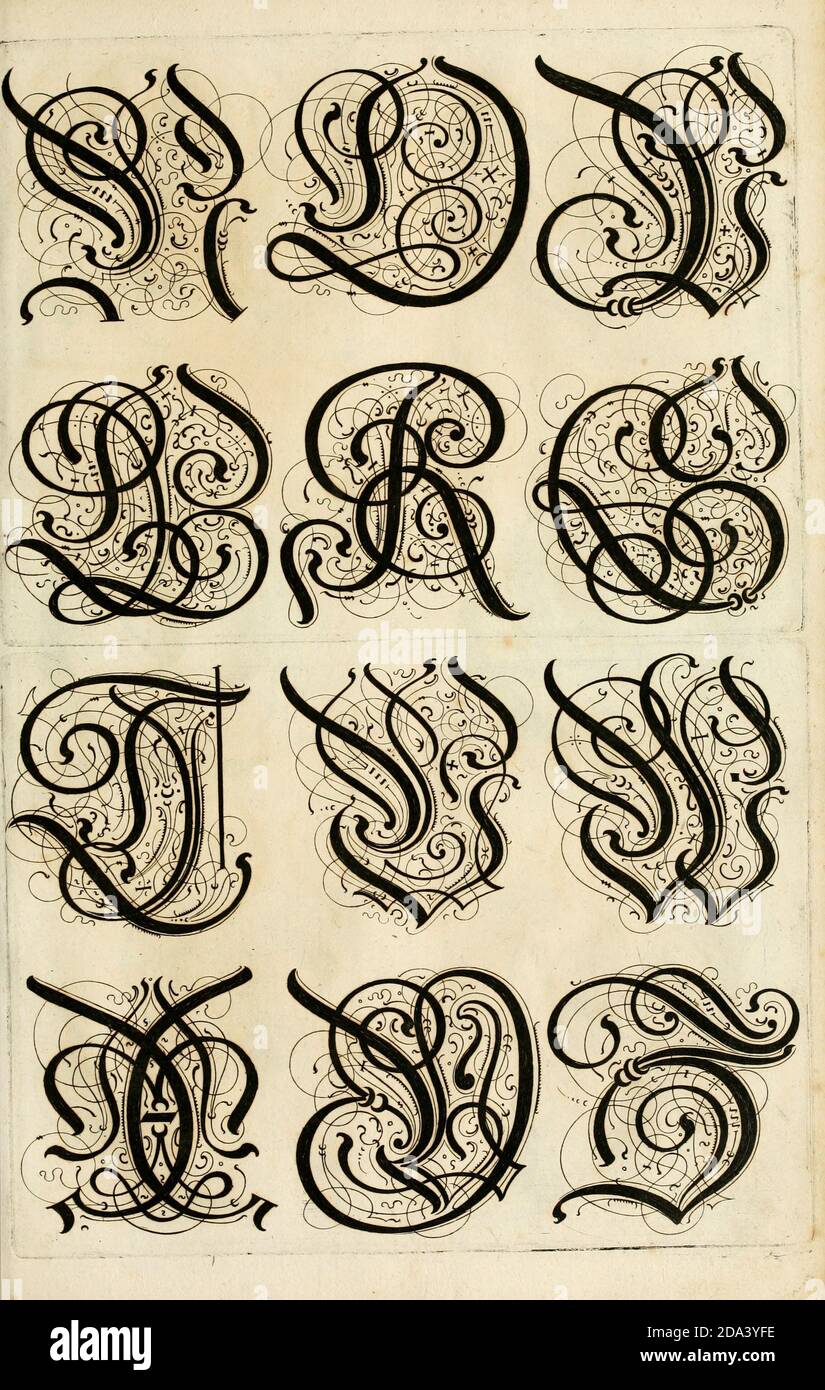 N O P
Q R S
T V W
X Y Z
alamy
Image ID: 2DA3YFE
www.alamy.com